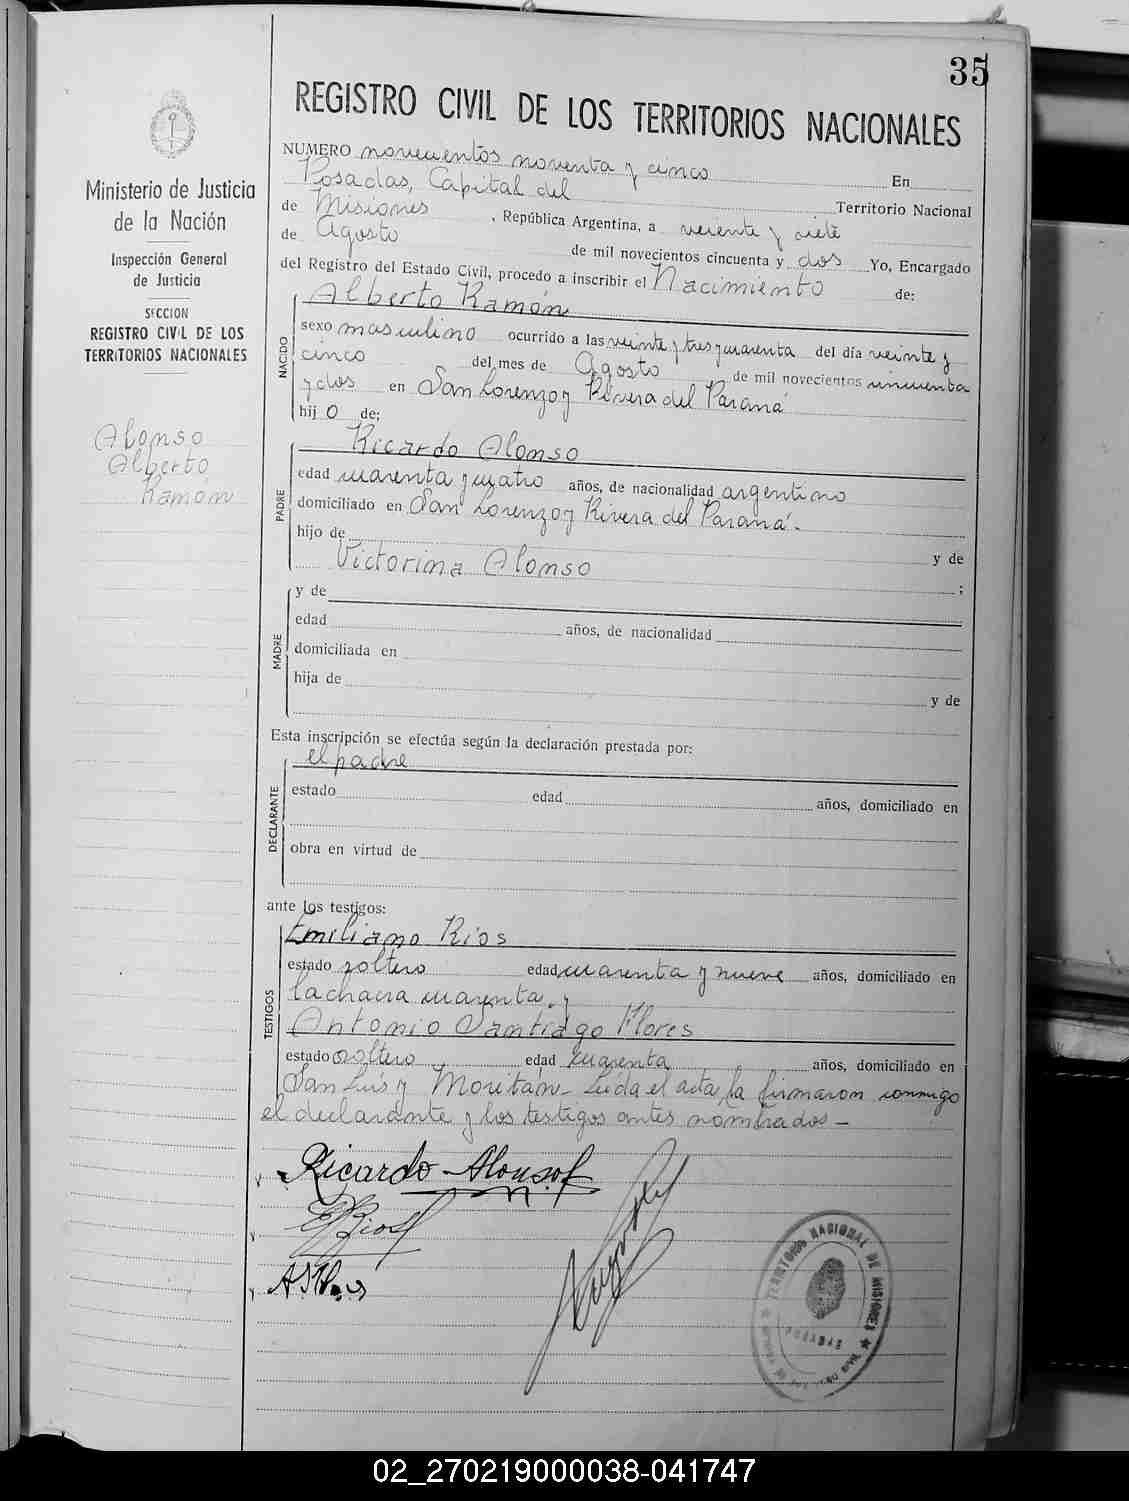 35
REGISTRO CIVIL DE LOS TERRITORIOS NACIONALES
Ministerio de Justicia
de la Nación
Inspección General
de Justicia
SECCION
REGISTRO CIVIL DE LOS
TERRITORIOS NACIONALES
Alonso
Alberto
Ramón
NUMERO novecientos noventa y cinco En
Posadas, Capital del Territorio Nacional
de Misiones, República Argentina, a veiente y siete
de Agosto de mil novecientos cincuenta y dos Yo, Encargado
del Registro del Estado Civil, procedo a inscribir el Nacimiento de:
NACIDO
Alberto Ramón
sexo masculino ocurrido a las veinte y tres y cuarenta del día veinte y
cinco del mes de Agosto de mil novecientos cincuenta
y dos en San Lorenzo y Rivera del Paraná
hijo de;
PADRE
Ricardo Alonso
edad cuarenta y cuatro años, de nacionalidad argentino
domiciliado en San Lorenzo y Rivera del Paraná.-
hijo de y de
Victorina Alonso ;
MADRE
y de
edad años, de nacionalidad
domiciliada en
hija de y de
Esta inscripción se efectúa según la declaración prestada por:
DECLARANTE
el padre
estado edad años, domiciliado en
obra en virtud de
ante los testigos:
TESTIGOS
Emiliano Ríos
estado soltero edad cuarenta y nueve años, domiciliado en
la chacra cuarenta. y
Antonio Santiago Flores
estado soltero edad cuarenta años, domiciliado en
San Luis y Moritán- Leida el acta, la firmaron conmigo
el declarante y los testigos antes nombrados-
Ricardo Alonso
E Rios
TERRITORIO NACIONAL DE MISIONES
POSADAS
02_270219000038-041747